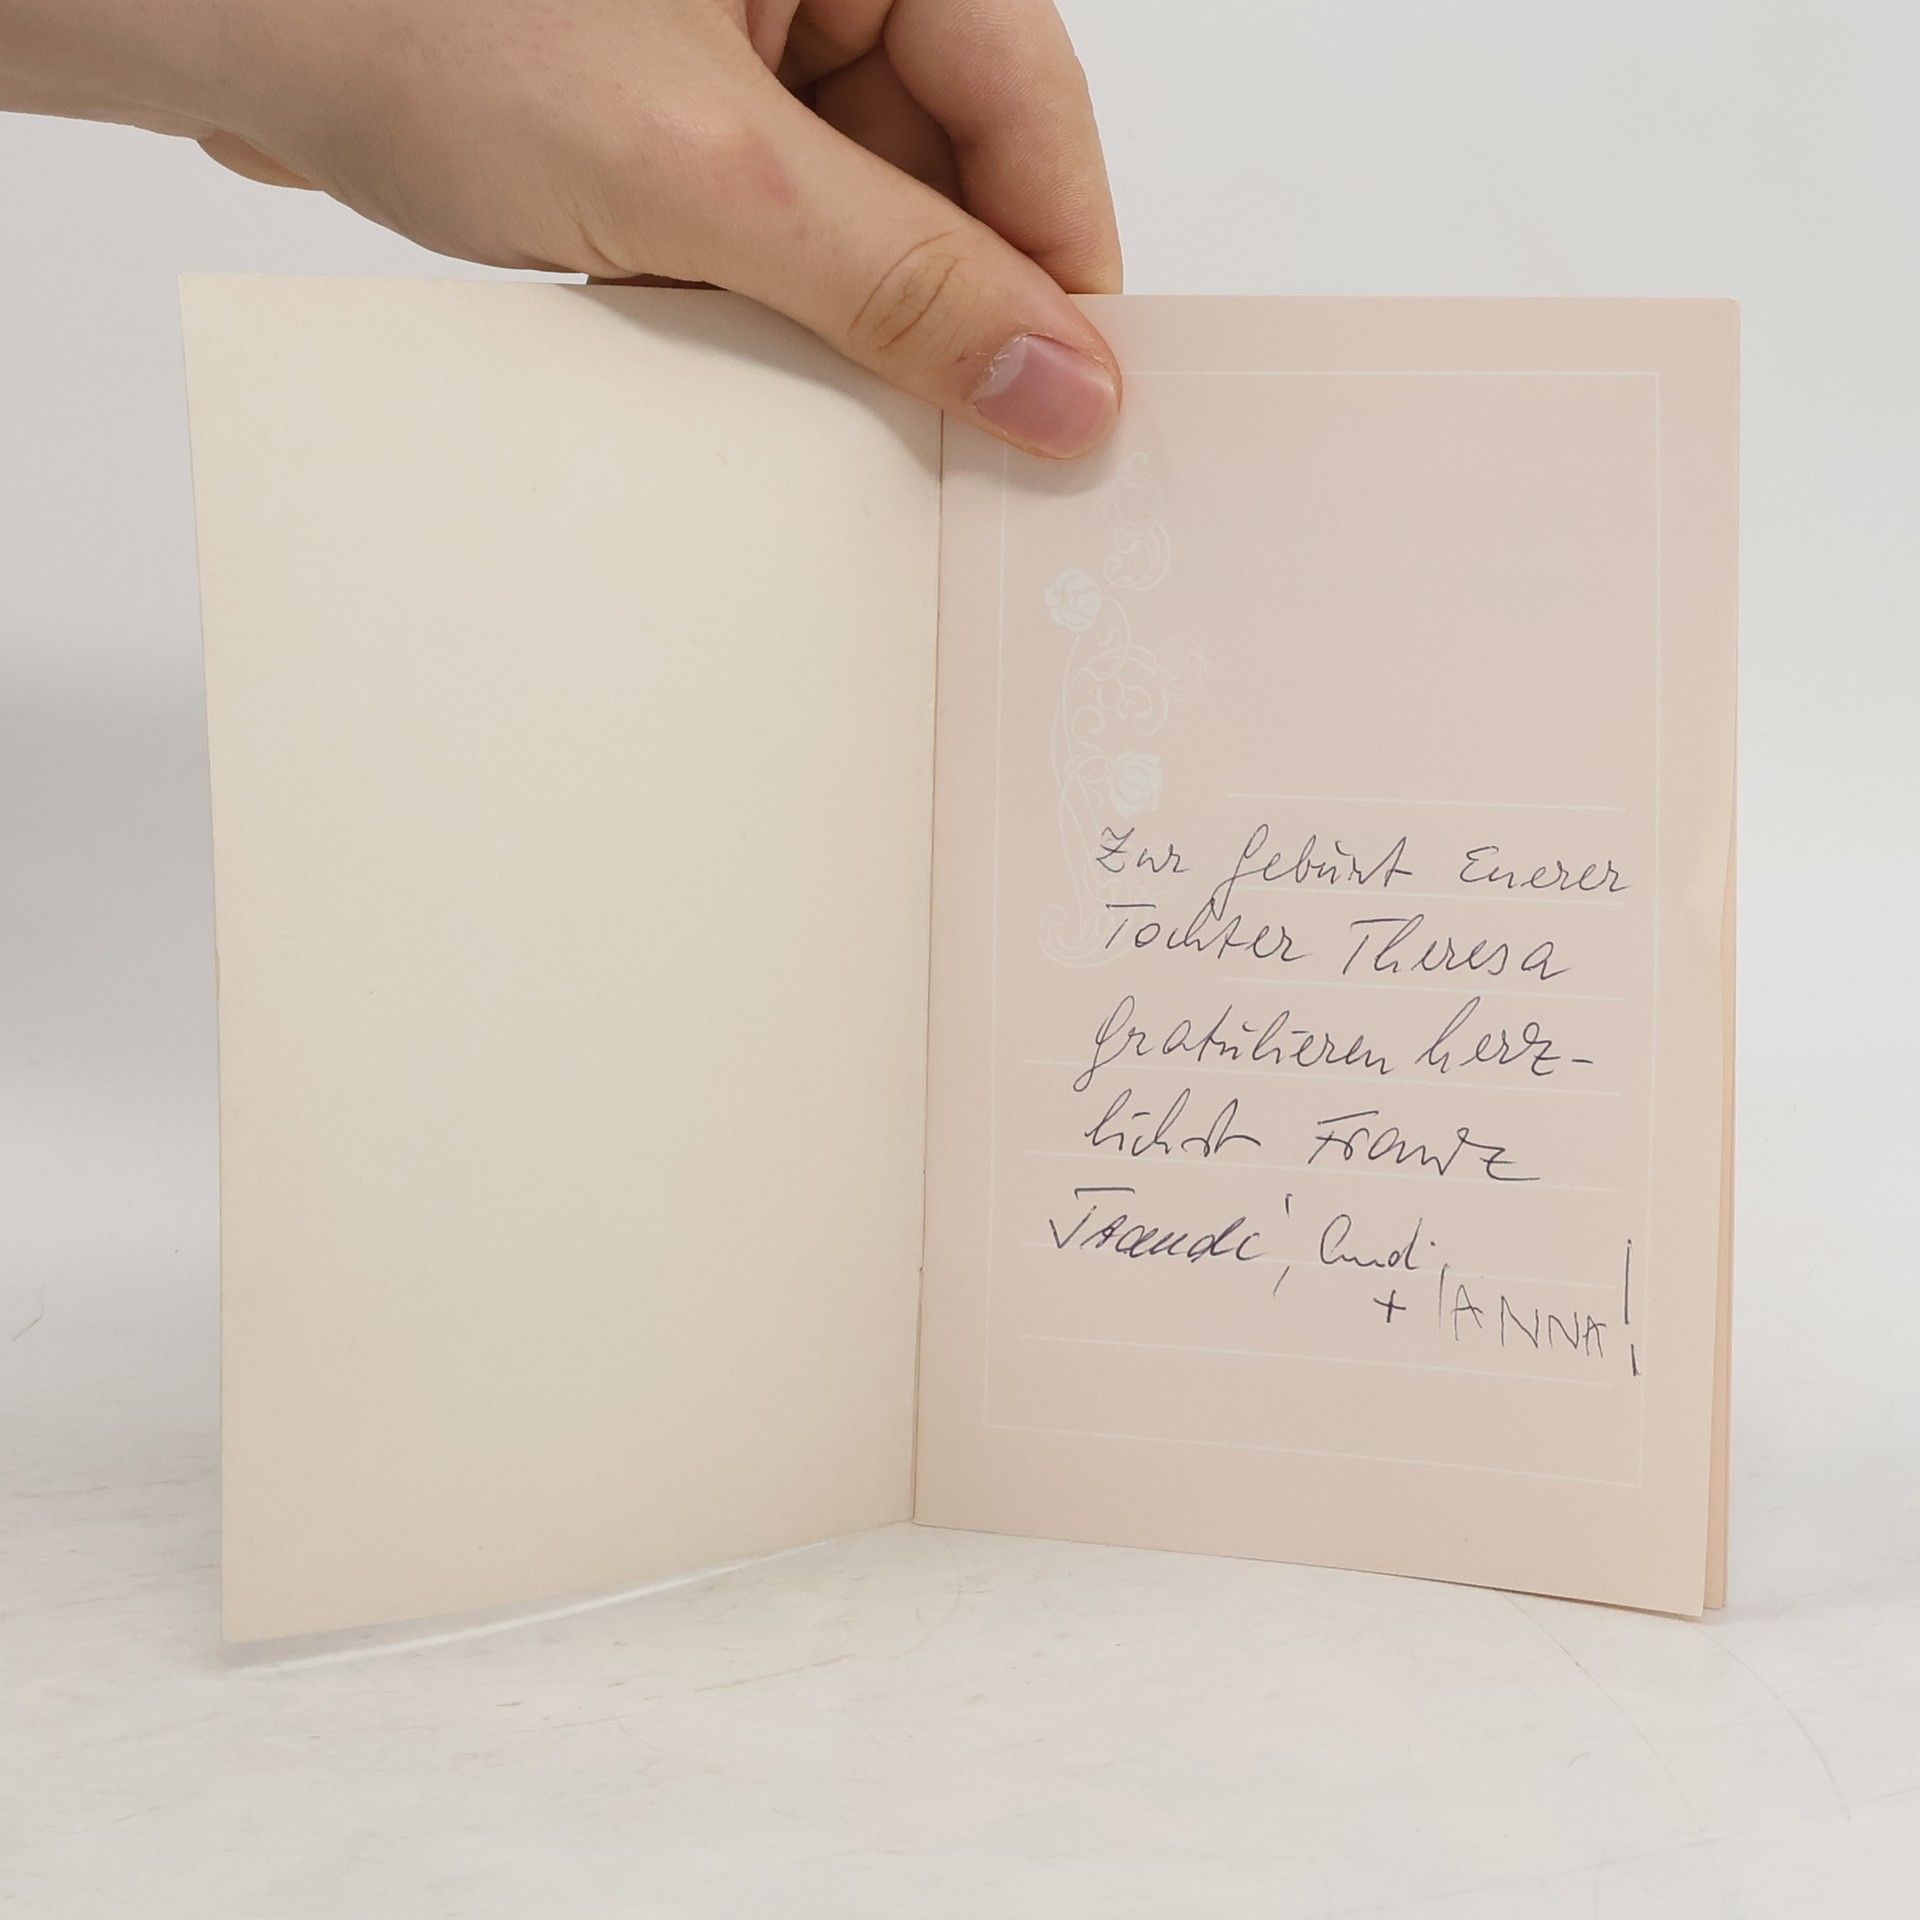 Zur Geburt Euerer
Tochter Theresa
gratulieren herz-
lichst Franz
Traudi, Andi,
+ ANNA!